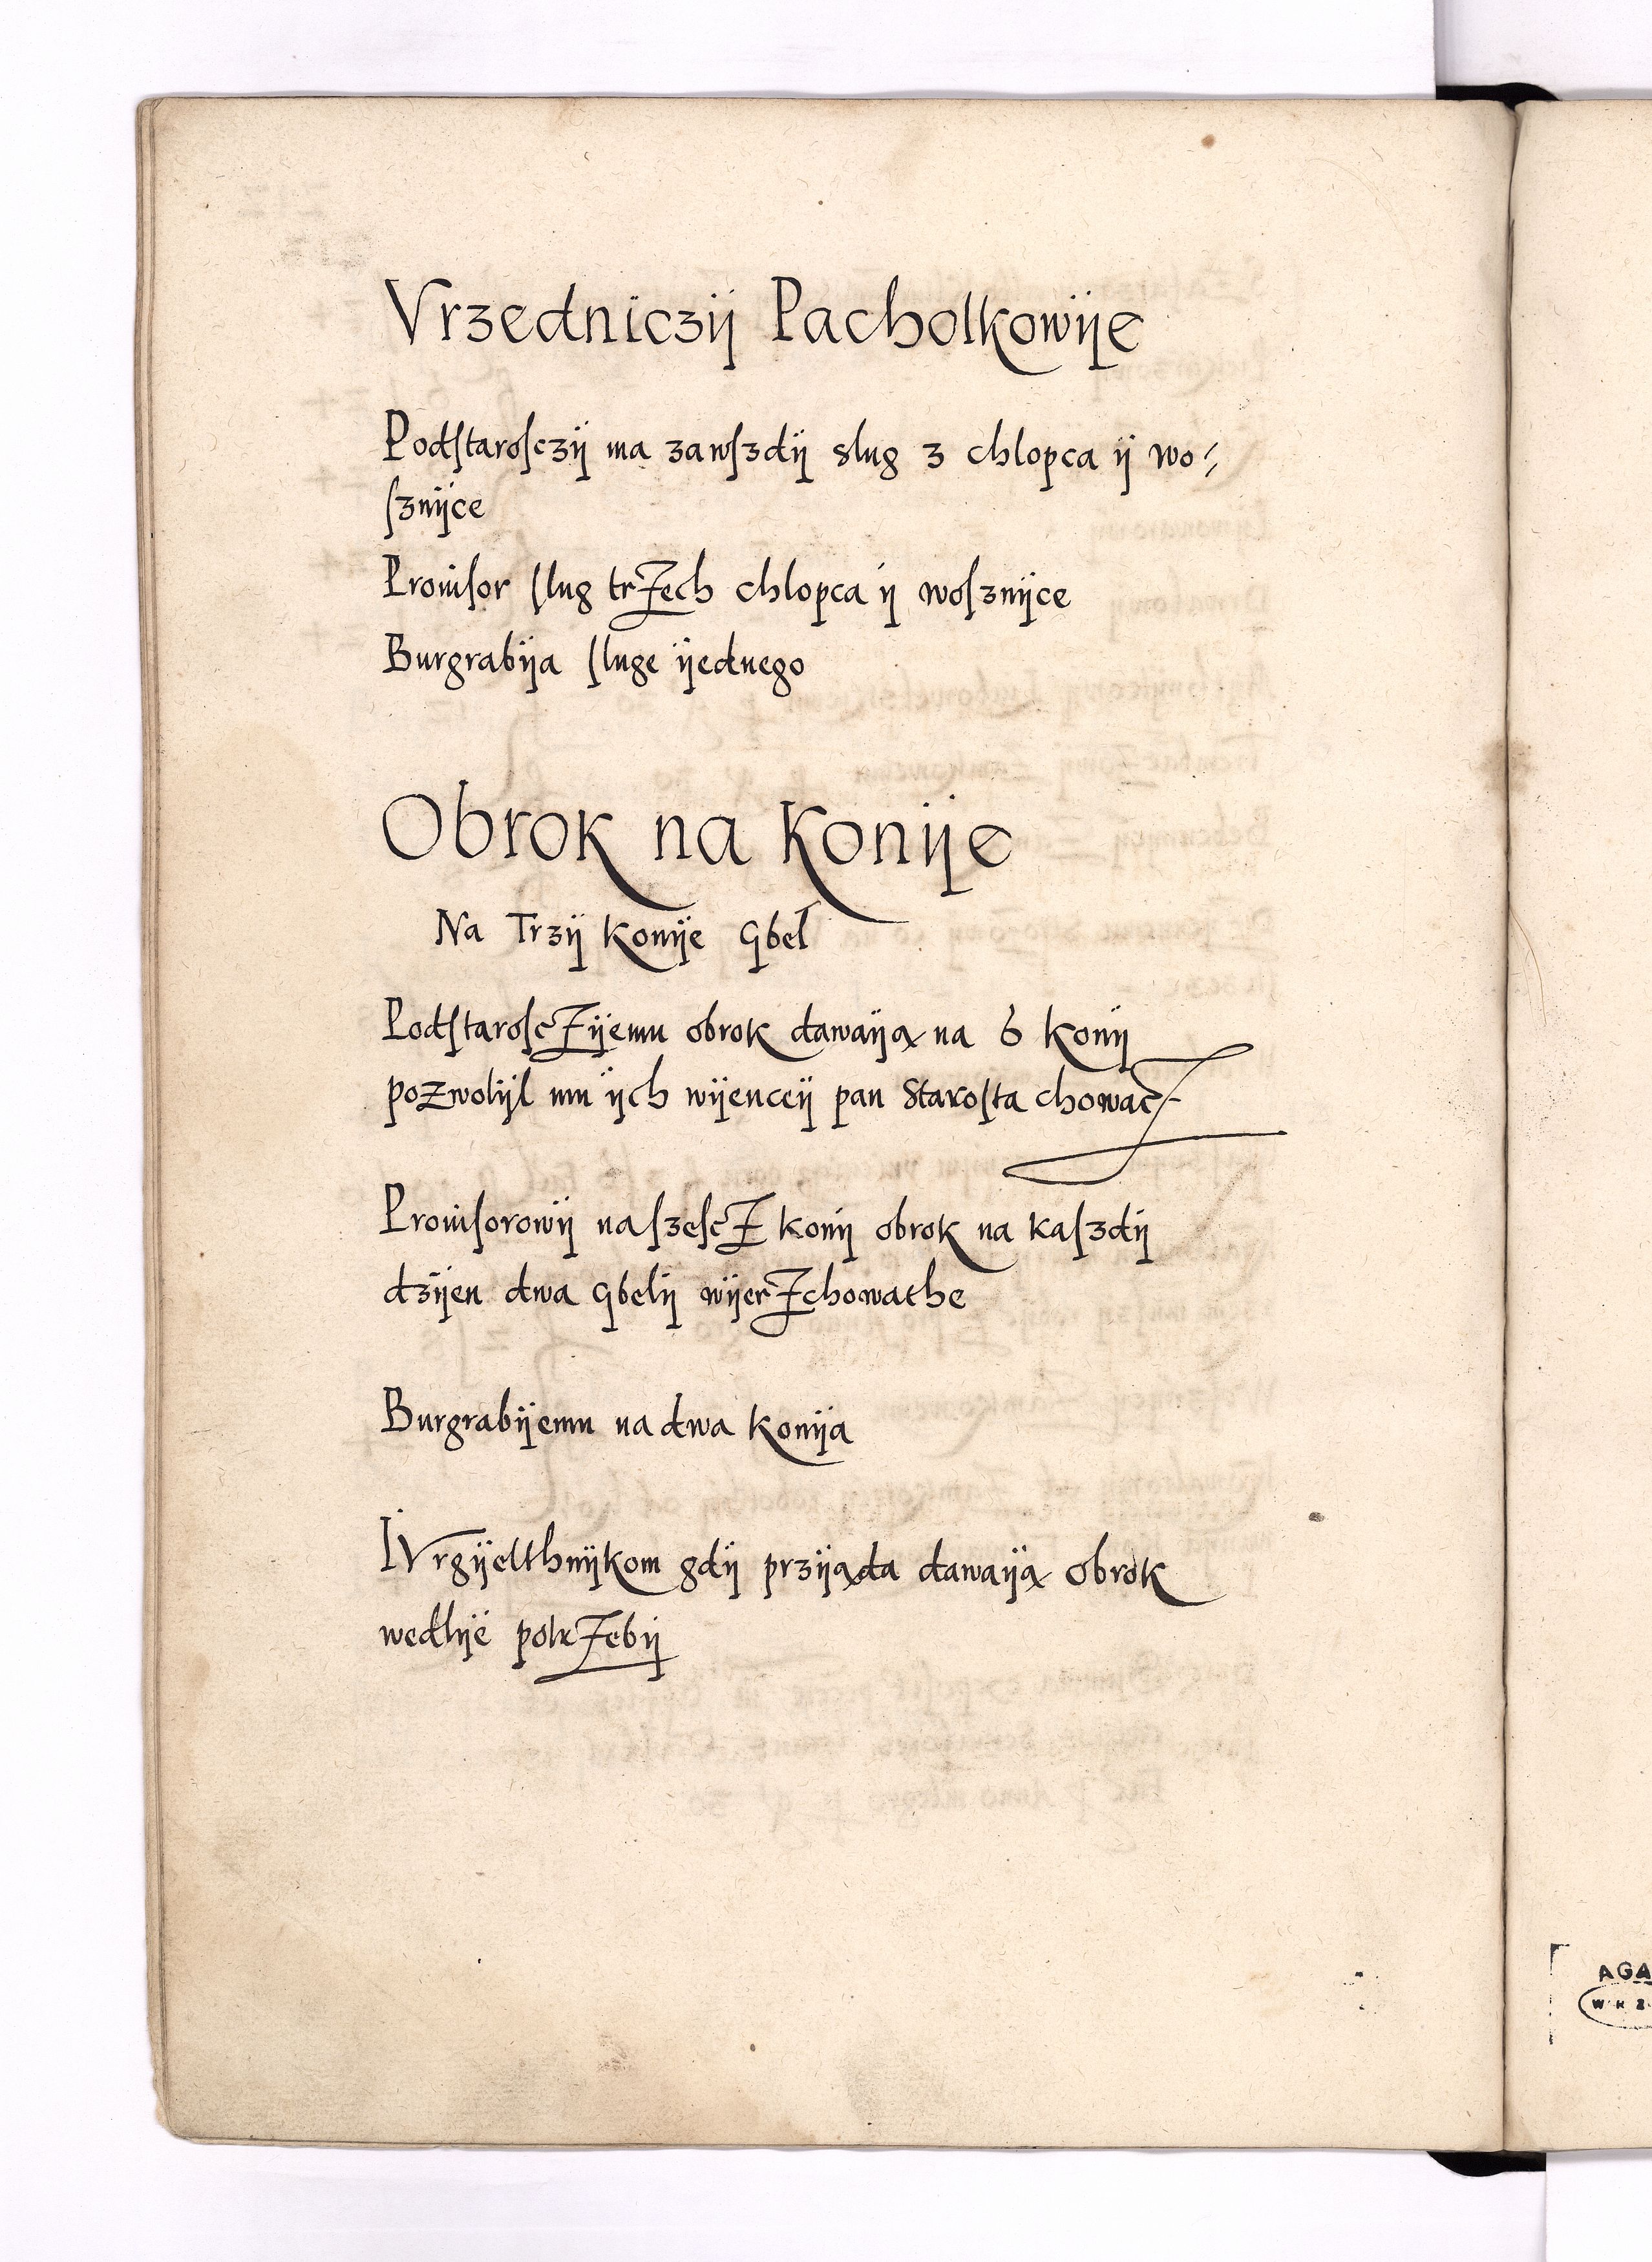 Vrzedniczij Pacholkowije
Podſtaroſczij ma zawſzdij slug 3 chlopca ij wo⸗
ſznijce
Prouiſor ſlug trZech chlopca ij woſznijce
Burgrabija ſluge ijednego
Obrok na Konije
Na Trzij Konije Gbel
PodſtaroſcZijemu obrok dawaiją na 6 Konij
poZwolijl mu ijch wijenceij pan Staroſta chowacZ
Prouiſorowij na ſzeſcZ konij obrok na kaſzdij
dzijen dwa Gbelij wijerZchowathe
Burgrabijemu na dwa Konija
IVrgijelthnijkom gdij przijąda dawaiją obrok
wedlije potrZebij
AGA